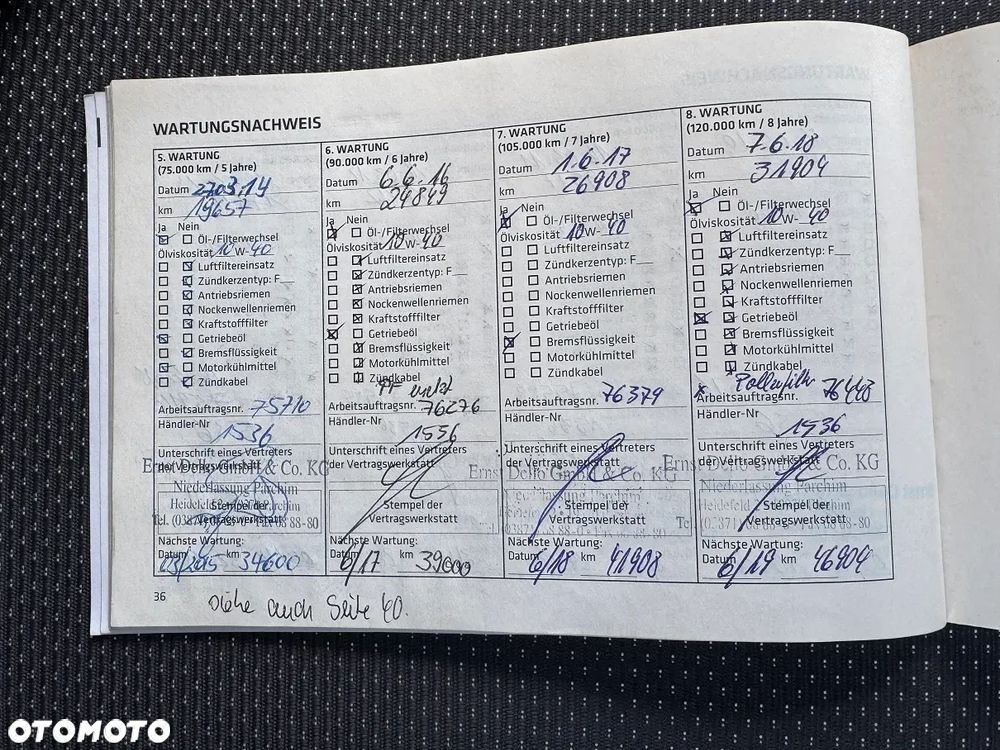 WARTUNGSNACHWEIS
5. WARTUNG
(75.000 km / 5 Jahre)
Datum 27.03.14
km 19657
Ja Nein
Öl-/Filterwechsel
Ölviskosität 10 W- 40
Luftfiltereinsatz
Zündkerzentyp: F__
Antriebsriemen
Nockenwellenriemen
Kraftstofffilter
Getriebeöl
Bremsflüssigkeit
Motorkühlmittel
Zündkabel
Arbeitsauftragsnr. 75710
Händler-Nr
1536
Unterschrift eines Vertreters
der Vertragswerkstatt
Ernst Dello GmbH & Co. KG
Niederlassung Parchim
Stempel der
Vertragswerkstatt
Nächste Wartung:
Datum km
03/2015 34600
6. WARTUNG
(90.000 km / 6 Jahre)
Datum 6.6.16
km 24849
Ja Nein
Öl-/Filterwechsel
Ölviskosität 10 W- 40
Luftfiltereinsatz
Zündkerzentyp: F__
Antriebsriemen
Nockenwellenriemen
Kraftstofffilter
Getriebeöl
Bremsflüssigkeit
Motorkühlmittel
Zündkabel
PF
Arbeitsauftragsnr. 76276
Händler-Nr
1536
Unterschrift eines Vertreters
der Vertragswerkstatt
Stempel der
Vertragswerkstatt
Nächste Wartung:
Datum km
6/17 39000
7. WARTUNG
(105.000 km / 7 Jahre)
Datum 1.6.17
km 26908
Ja Nein
Öl-/Filterwechsel
Ölviskosität 10 W- 40
Luftfiltereinsatz
Zündkerzentyp: F__
Antriebsriemen
Nockenwellenriemen
Kraftstofffilter
Getriebeöl
Bremsflüssigkeit
Motorkühlmittel
Zündkabel
Arbeitsauftragsnr. 76379
Händler-Nr
Unterschrift eines Vertreters
der Vertragswerkstatt
Ernst Dello GmbH & Co. KG
Stempel der
Vertragswerkstatt
Nächste Wartung:
Datum km
6/18 41908
8. WARTUNG
(120.000 km / 8 Jahre)
Datum 7.6.18
km 31904
Ja Nein
Öl-/Filterwechsel
Ölviskosität 10 W- 40
Luftfiltereinsatz
Zündkerzentyp: F__
Antriebsriemen
Nockenwellenriemen
Kraftstofffilter
Getriebeöl
Bremsflüssigkeit
Motorkühlmittel
Zündkabel
Pollenfilter
Arbeitsauftragsnr. 76448
Händler-Nr
1536
Unterschrift eines Vertreters
der Vertragswerkstatt
Ernst Dello GmbH & Co. KG
Niederlassung Parchim
Stempel der
Vertragswerkstatt
Nächste Wartung:
Datum km
6/19 46904
36
siehe auch Seite 40.
OTOMOTO